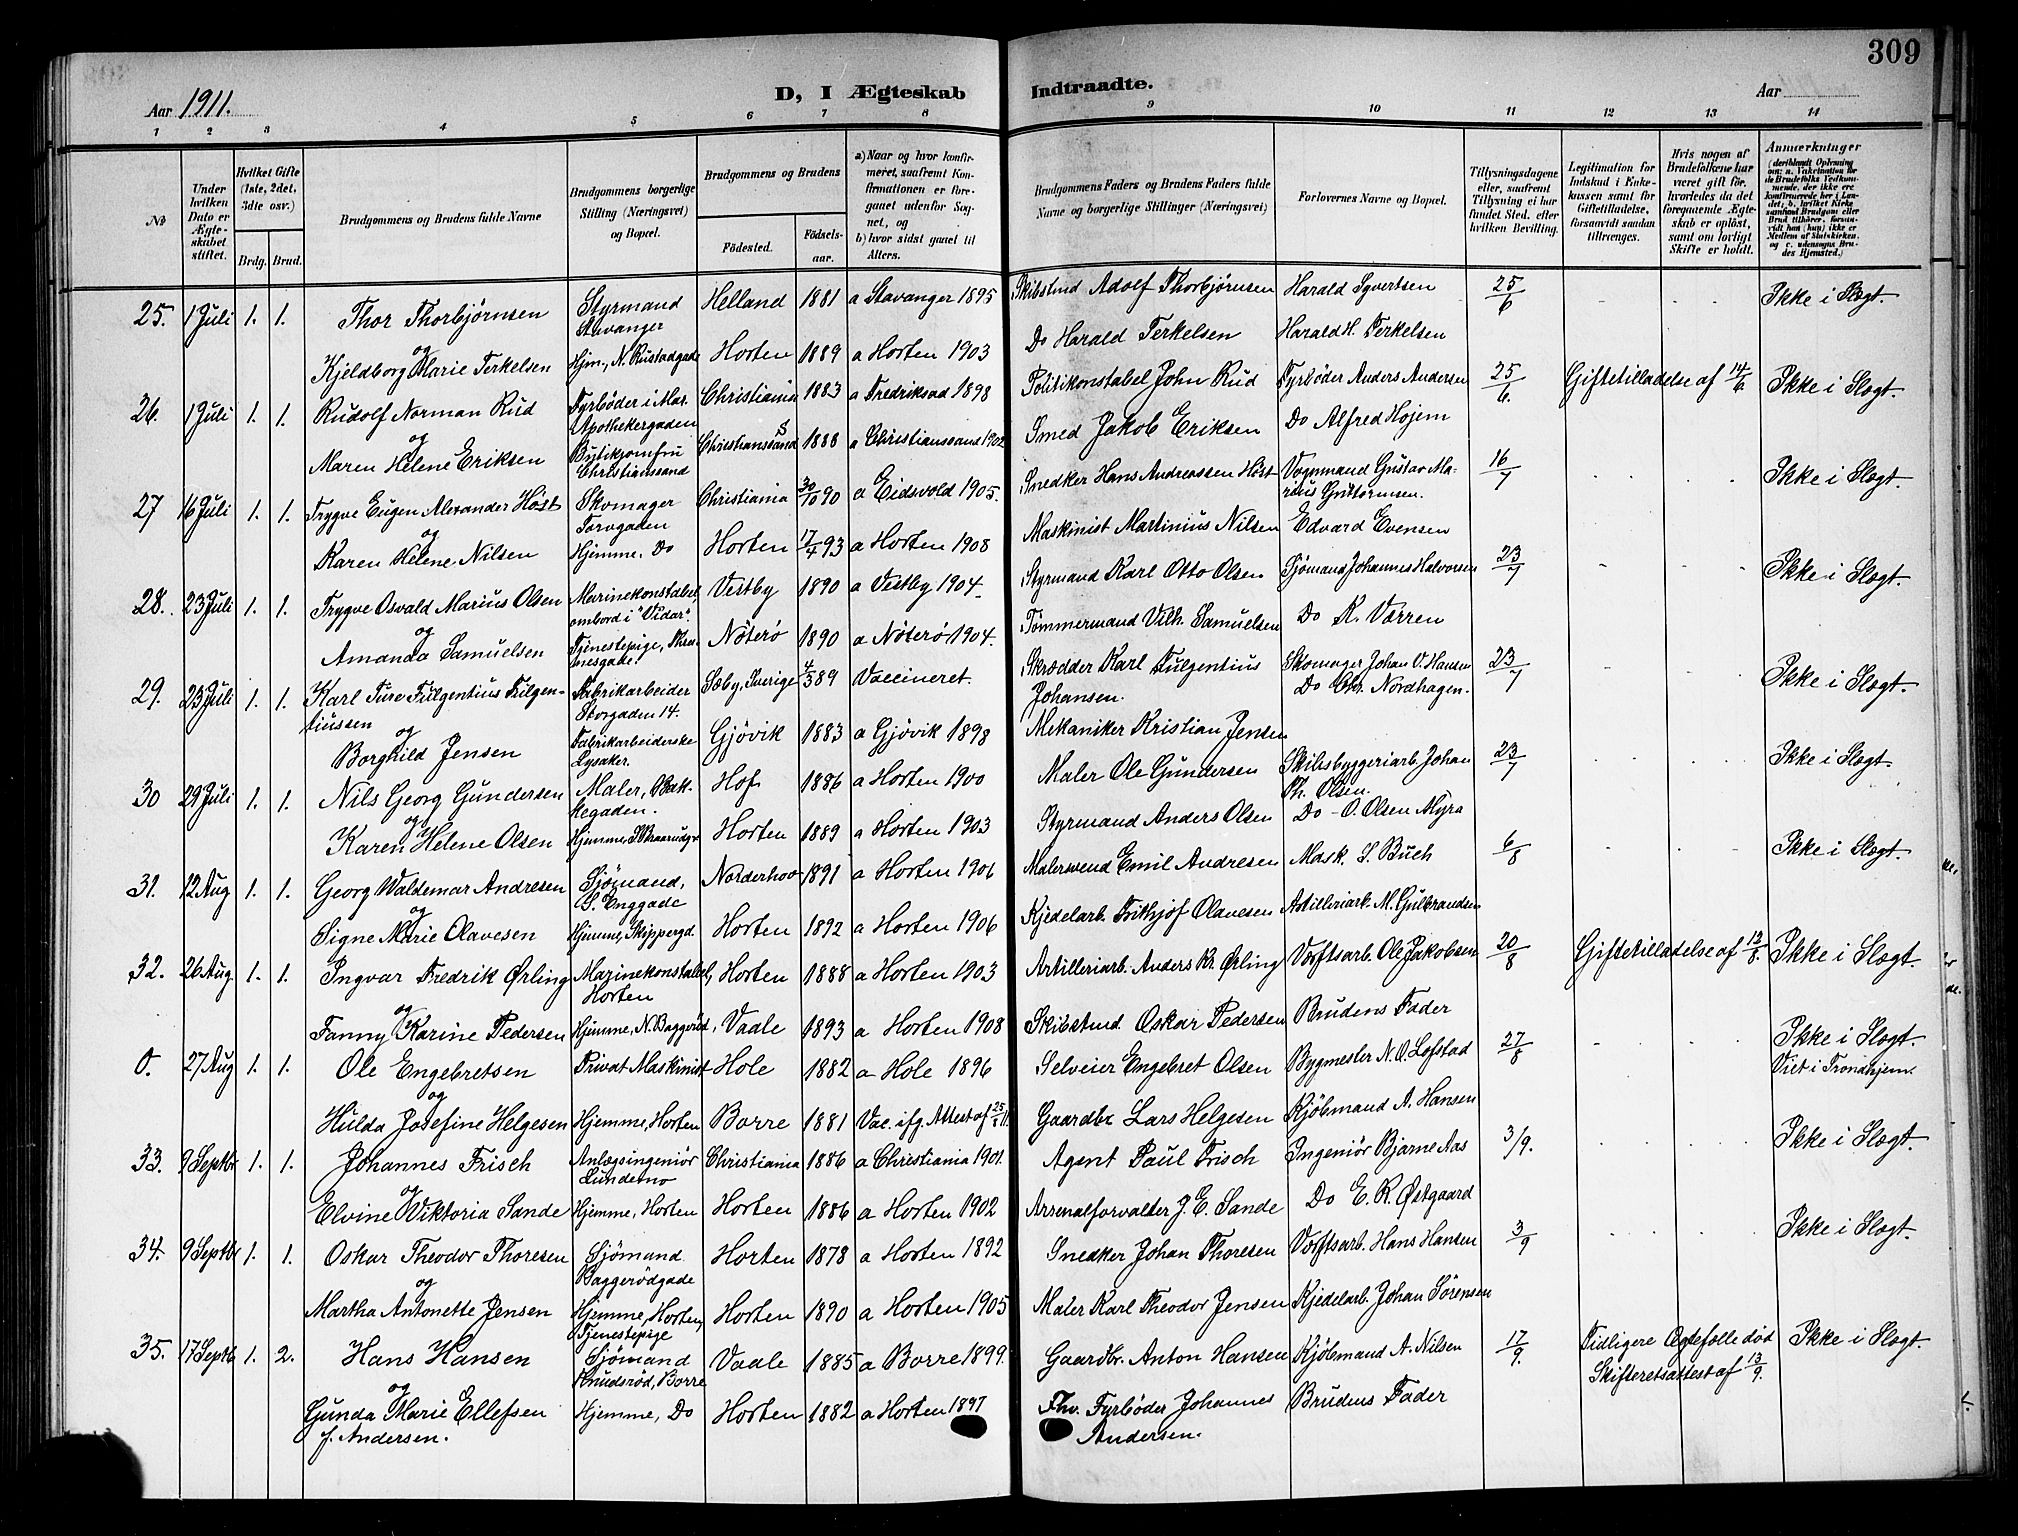 309
Aar 1911.
D, I Ægteskab Indtraadte.
Aar
1 2 3 4 5 6 7 8 9 10 11 12 13 14
No
Under hvilken Dato er Ægteskabet stiftet.
Hvilket Gifte (1ste, 2det, 3die osv.)
Brdg. Brud.
Brudgommens og Brudens fulde Navne
Brudgommens borgerlige Stilling (Næringsvei) og Bopæl.
Brudgommens og Brudens
Födested. Födsels-aar.
a) Naar og hvor konfirmeret, saafremt Konfirmationen er foregaaet udenfor Sognet, og
b) hvor sidst gaaet til Alters.
Brudgommens Faders og Brudens Faders fulde Navne og borgerlige Stillinger (Næringsvei)
Forlovernes Navne og Bopæl.
Tillysningsdagene eller, saafremt Tillysning ei har fundet Sted, efter hvilken Bevilling.
Legitimation for Indskud i Enkekassen samt for Giftetilladelse, forsaavidt saadan tiltrænges.
Hvis nogen af Brudefolkene har været gift för, hvorledes da det foregaaende Ægteskab er oplöst, samt om lovligt Skifte er holdt.
Anmærkninger
25. 1 Juli 1. 1. Thor Thorbjørnsen Styrmand Stavanger Helland 1881 a Stavanger 1895 Skibstmd Adolf Thorbjørnsen Harald Syvertsen 25/6 Ikke i Slægt.
og
Kjeldborg Marie Terkelsen Hjm., N. Rustadgade Horten 1889 a Horten 1903 Do Harald Terkelsen Harald H. Terkelsen
26. 1 Juli 1. 1. Rudolf Norman Rud Fyrbøder i Mar. Apothekergaden Christiania 1883 a Fredriksad 1898 Politikonstabel John Rud Fyrbøder Anders Andersen 25/6. Giftetilladelse af 14/6. Ikke i Slægt.
og
Maren Helene Eriksen Butikjomfru Christianssand Christianssand S 1888 a Christianssand 1902 Smed Jakob Eriksen Do Alfred Hojem
27 16 Juli 1. 1. Trygve Eugen Alexander Høst Skomager Torvgaden Christiania 30/10 90 a Eidsvold 1905. Snedker Hans Andreassen Høst Vognmand Gustav Marius Guttormsen. 16/7 Ikke i Slægt.
og
Karen Helene Nilsen Hjemme. Do Horten 17/4 93 a Horten 1908 Maskinist Martinius Nilsen Edvard Evensen
28. 23 Juli 1. 1. Trygve Osvald Marius Olsen Marinekonstabel, ombord i "Vidar". Vestby 1890 a Vestby 1904. Styrmand Karl Otto Olsen Sjømand Johannes Halvorsen 23/7 Ikke i Slægt.
og
Amanda Samuelsen Tjenestepige, Nøterø 1890 a Nøterø 1904. Tømmermand Vilh. Samuelsen Do K. Værren
29. 23 Juli 1. 1. Karl Tuse Fulgentius Fulgentiussen Fabrikarbeider Storgaden 14. Sæby, Sverige 4/5 89 Vaccineret. Skrædder Karl Fulgentius Johansen. Skomager Johan O. Hansen 23/7 Ikke i Slægt.
og
Borghild Jensen Fabrikarbeiderske Lysaker. Gjøvik 1883 a Gjøvik 1898 Mekaniker Kristian Jensen Do Chr. Nordhagen.
30 29 Juli 1. 1. Nils Georg Gundersen Maler, Bakkegaden. Hof 1886 a Horten 1900 Maler Ole Gundersen Skibsbyggeriarb. Johan Th. Olsen. 23/7 Ikke i Slægt.
og
Karen Helene Olsen Hjemme, S. Braarudgt Horten 1889 a Horten 1903 Styrmand Anders Olsen Do - O. Olsen Myra
31. 12 Aug 1. 1. Georg Waldemar Andresen Sjømand, S. Enggade Norderhov 1891 a Horten 1906 Malersvend Emil Andresen Mask. S. Buch 6/8 Ikke i Slægt.
og
Signe Marie Olavesen Hjemme, Skippergd. Horten 1892 a Horten 1906 Kjedelarb. Frithjof Olavesen Artilleriarb. M. Gulbrandsen
32. 26 Aug. 1. 1. Ingvar Fredrik Ørling Marinekonstabel, Horten Horten 1888 a Horten 1903 Artilleriarb. Anders Kr. Ørling Værftsarb. Ole Jakobsen 20/8 Giftetilladelse af 12/8. Ikke i Slægt.
og
Fanny Karine Pedersen Hjemme, N. Baggerud, Vaale 1893 a Horten 1908 Skibstmd. Oskar Pedersen Brudens Fader
0. 27 Aug 1. 1. Ole Engebretsen Privat Maskinist Hole 1882 a Hole 1896 Selveier Engebret Olsen Bygmester N. O. Lofstad 27/8 Ikke i Slægt. Viet i Trondhjem.
og
Hulda Josefine Helgesen Hjemme, Horten Borre 1881 Vac. ifg. Attest af Gaardbr Lars Helgesen Kjøbmand A. Hansen
33. 9 Septbr 1. 1. Johannes Frisch Anlægsingeniør Christiania 1886 a Christiania 1901. Agent Paul Frisch Ingeniør Bjarne Aas 3/9. Ikke i Slægt.
og
Elvine Wiktoria Sande Hjemme, Horten Horten 1886 a Horten 1902 Arsenalforvalter J. E. Sande Do E. R. Østgaard
34. 9 Septbr 1. 1. Oskar Theodor Thoresen Sjømand Baggerødgade Horten 1878 a Horten 1892 Snedker Johan Thoresen Værftsarb. Hans Hansen 3/9 Ikke i Slægt.
og
Martha Antonette Jensen Hjemme, Horten, Tjenestepige Horten 1890 a Horten 1905 Maler Karl Theodor Jensen Kjedelarb. Johan Sørensen
35. 17 Septb 1. 2. Hans Hansen Sjømand Knudsrød, Borre Vaale 1885 a Borre 1899. Gaardbr. Anton Hansen Kjøbmand A. Nilsen 17/9. Tidligere Ægtefælle død Skifteretsattest af 13/9. Ikke i Slægt.
og
Gunda Marie Ellefsen f. Andersen. Hjemme, Do Horten 1882 a Horten 1897 Fhv. Fyrbøder Johannes Andersen. Brudens Fader